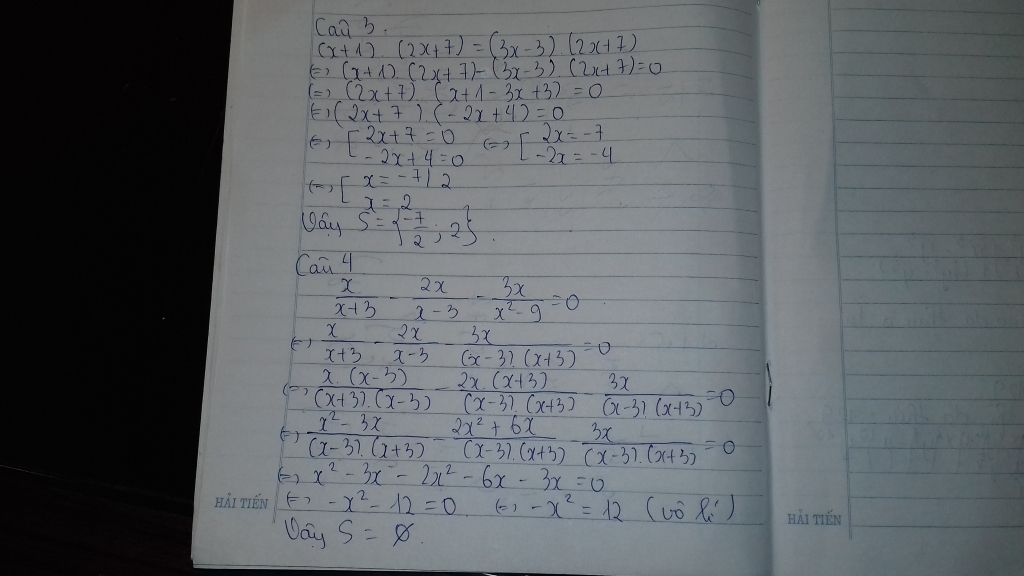 Câu 3.
(x+1).(2x+7) = (3x-3).(2x+7)
⇔ (x+1).(2x+7) - (3x-3).(2x+7) = 0
⇔ (2x+7).(x+1-3x+3) = 0
⇔ (2x+7).(-2x+4) = 0
⇔ [ 2x+7 = 0 ⇔ [ 2x = -7
-2x+4 = 0 -2x = -4
⇔ [ x = -7/2
x = 2
Vậy S = {-7/2 ; 2}.
Câu 4
x/(x+3) - 2x/(x-3) - 3x/(x²-9) = 0
⇔ x/(x+3) - 2x/(x-3) - 3x/((x-3).(x+3)) = 0
⇔ x.(x-3)/((x+3).(x-3)) - 2x.(x+3)/((x-3).(x+3)) - 3x/((x-3).(x+3)) = 0
⇔ (x²-3x)/((x-3).(x+3)) - (2x²+6x)/((x-3).(x+3)) - 3x/((x-3).(x+3)) = 0
⇔ x² - 3x - 2x² - 6x - 3x = 0
⇔ -x² - 12 = 0 ⇔ -x² = 12 (vô lí)
Vậy S = ∅.
HẢI TIẾN
HẢI TIẾN